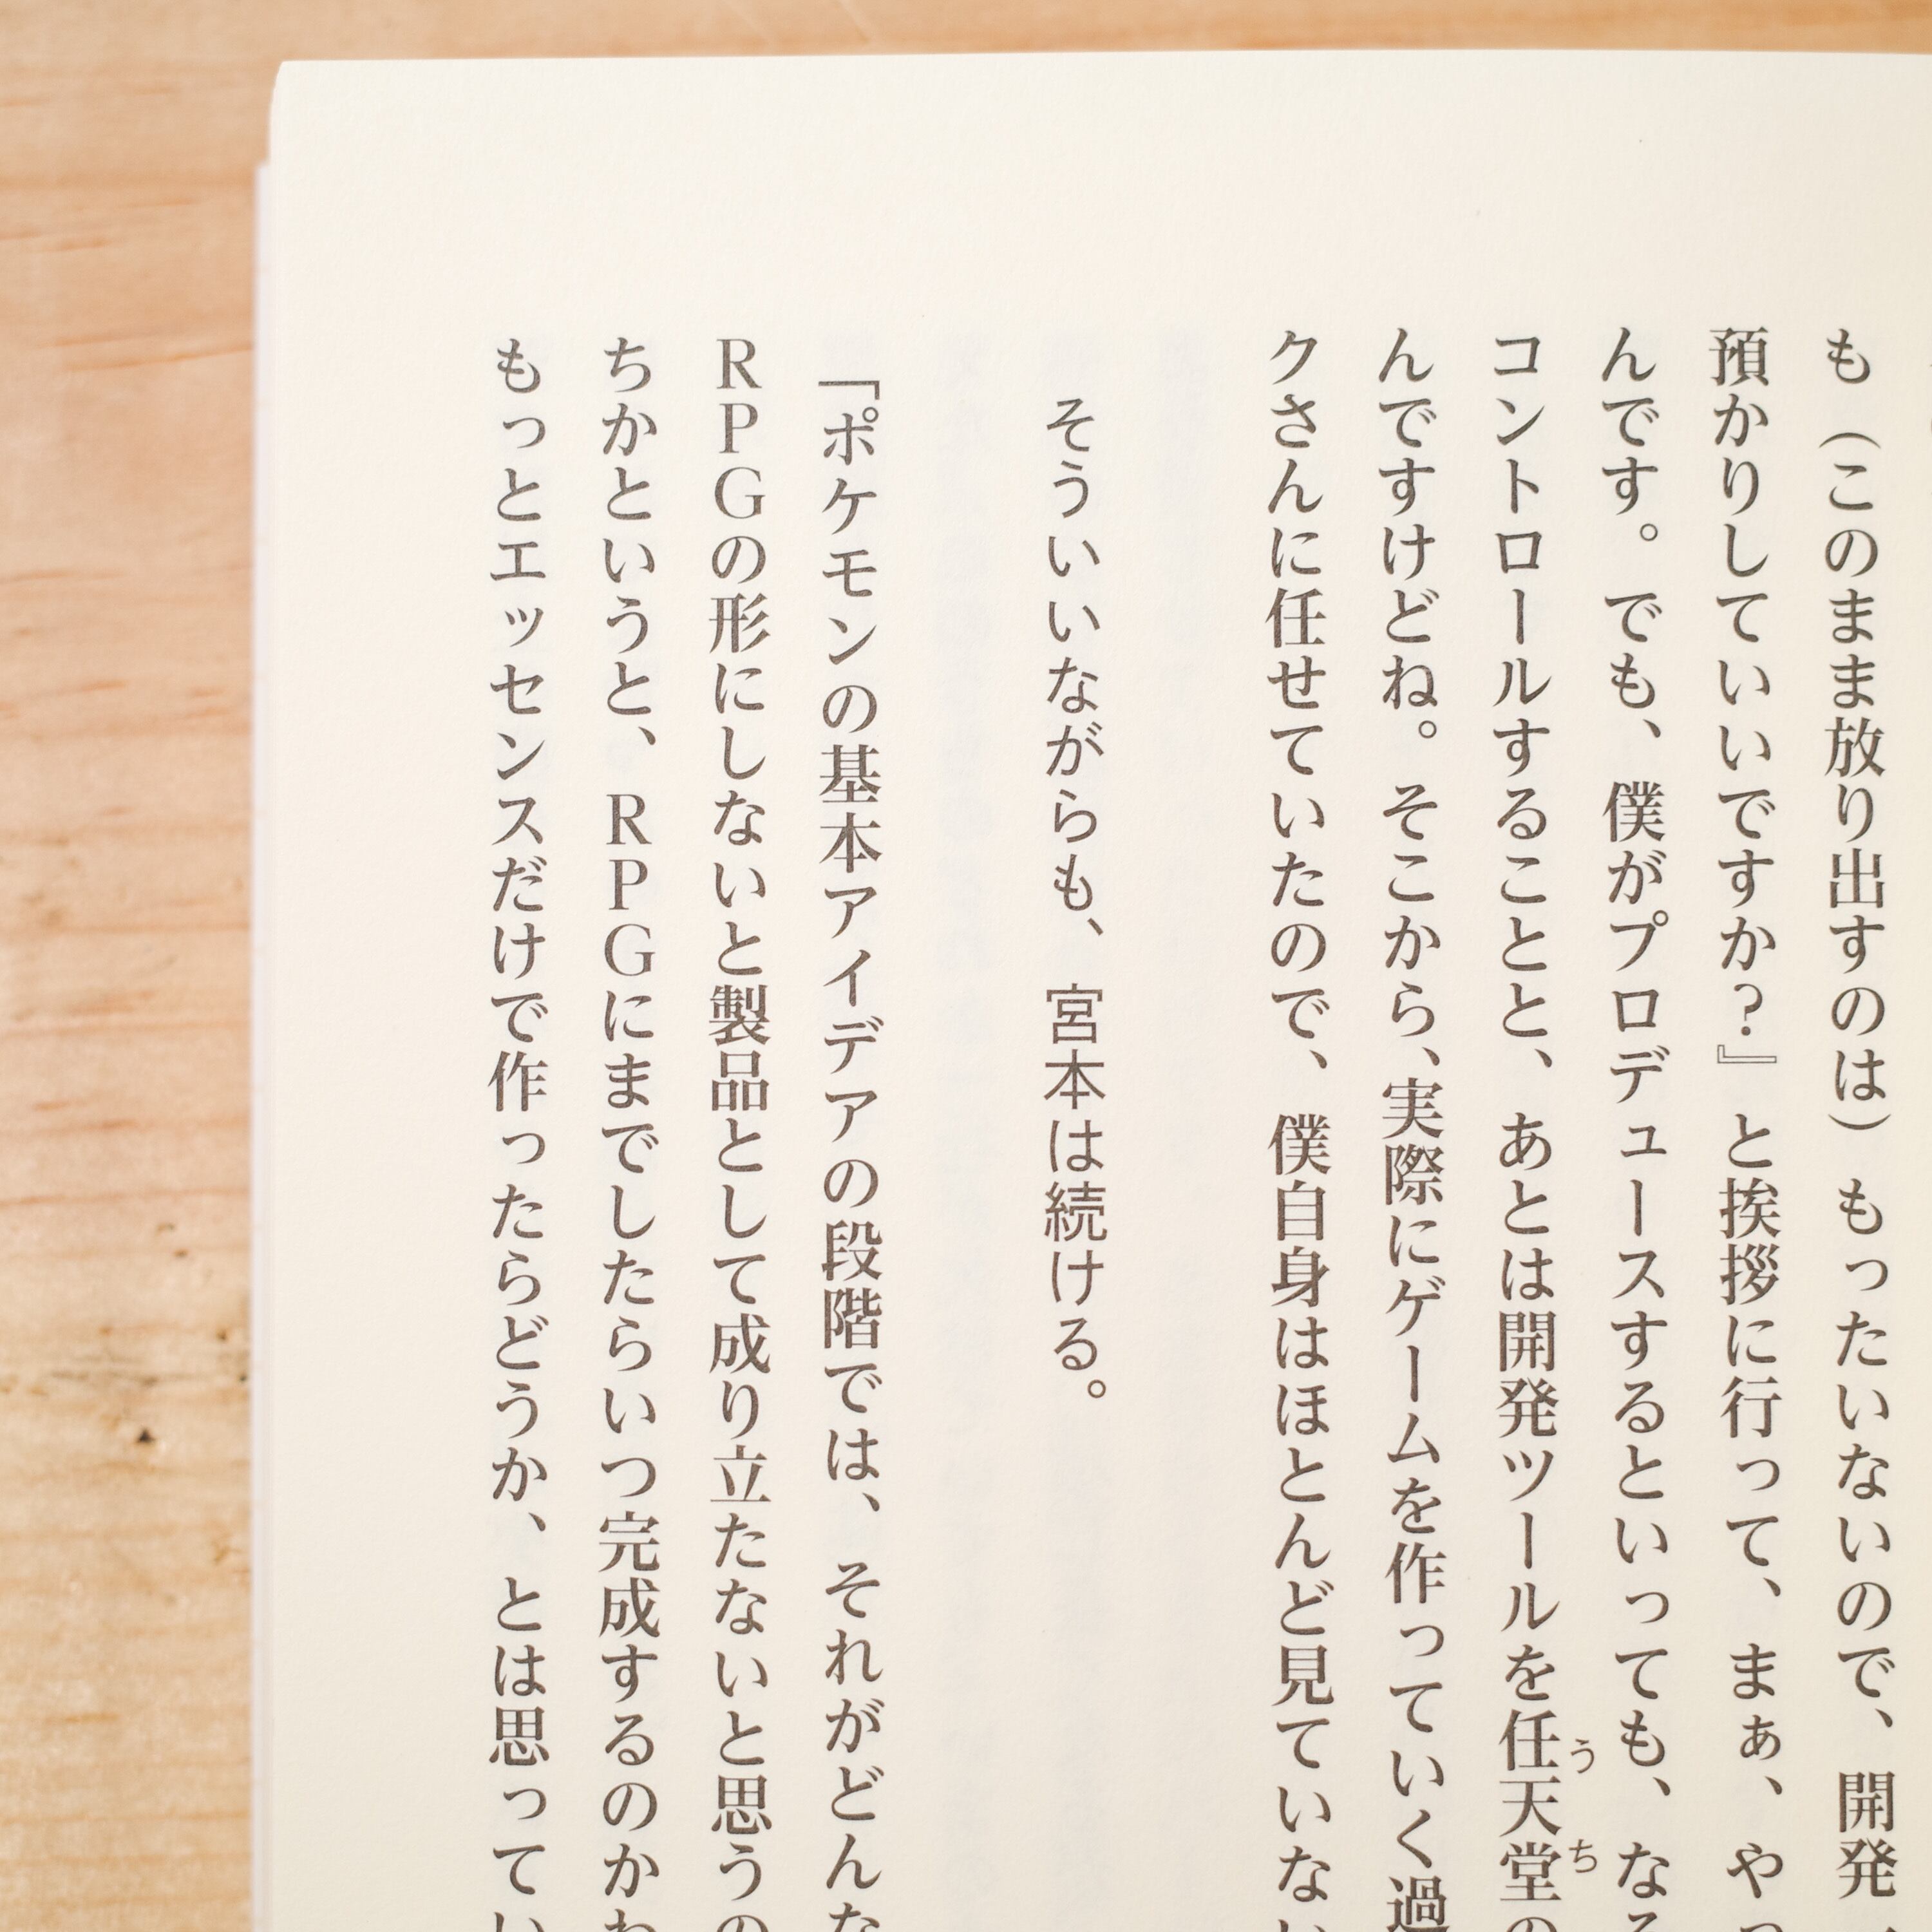 も（このまま放り出すのは）もったいないので、開発
預かりしていいですか？』と挨拶に行って、まぁ、やっ
んです。でも、僕がプロデュースするといっても、なる
コントロールすることと、あとは開発ツールを任天堂の
うち
んですけどね。そこから、実際にゲームを作っていく過
クさんに任せていたので、僕自身はほとんど見ていない
そういいながらも、宮本は続ける。
「ポケモンの基本アイデアの段階では、それがどんな
RPGの形にしないと製品として成り立たないと思うの
ちかというと、RPGにまでしたらいつ完成するのかわ
もっとエッセンスだけで作ったらどうか、とは思ってい